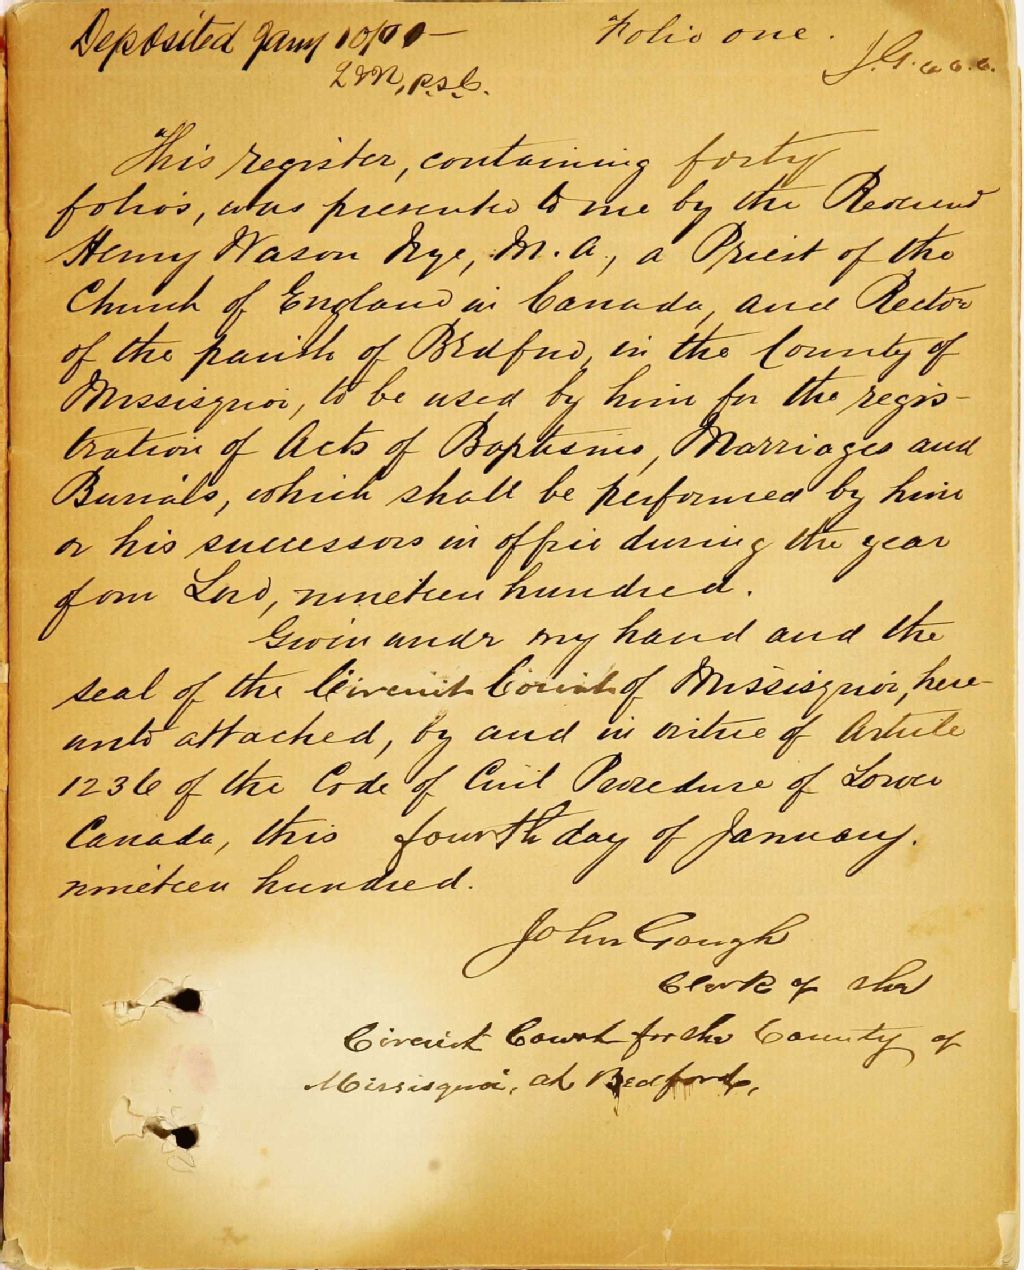 Deposited Jany 10/01 —
Folio one.
J.G. c.c.c.
P.S.C.
This register, containing forty
folios, was presented to me by the Reverend
Henry Wason Nye, M.A., a Priest of the
Church of England in Canada, and Rector
of the parish of Bedford, in the County of
Missisquoi, to be used by him for the regis-
tration of Acts of Baptisms, Marriages and
Burials, which shall be performed by him
or his successors in office during the year
of our Lord, nineteen hundred.
Given under my hand and the
seal of the Circuit Court of Missisquoi, here-
unto attached, by and in virtue of Article
1236 of the Code of Civil Procedure of Lower
Canada, this fourth day of January.
nineteen hundred.
John Gough
Clerk of the
Circuit Court for the County of
Missisquoi, at Bedford,